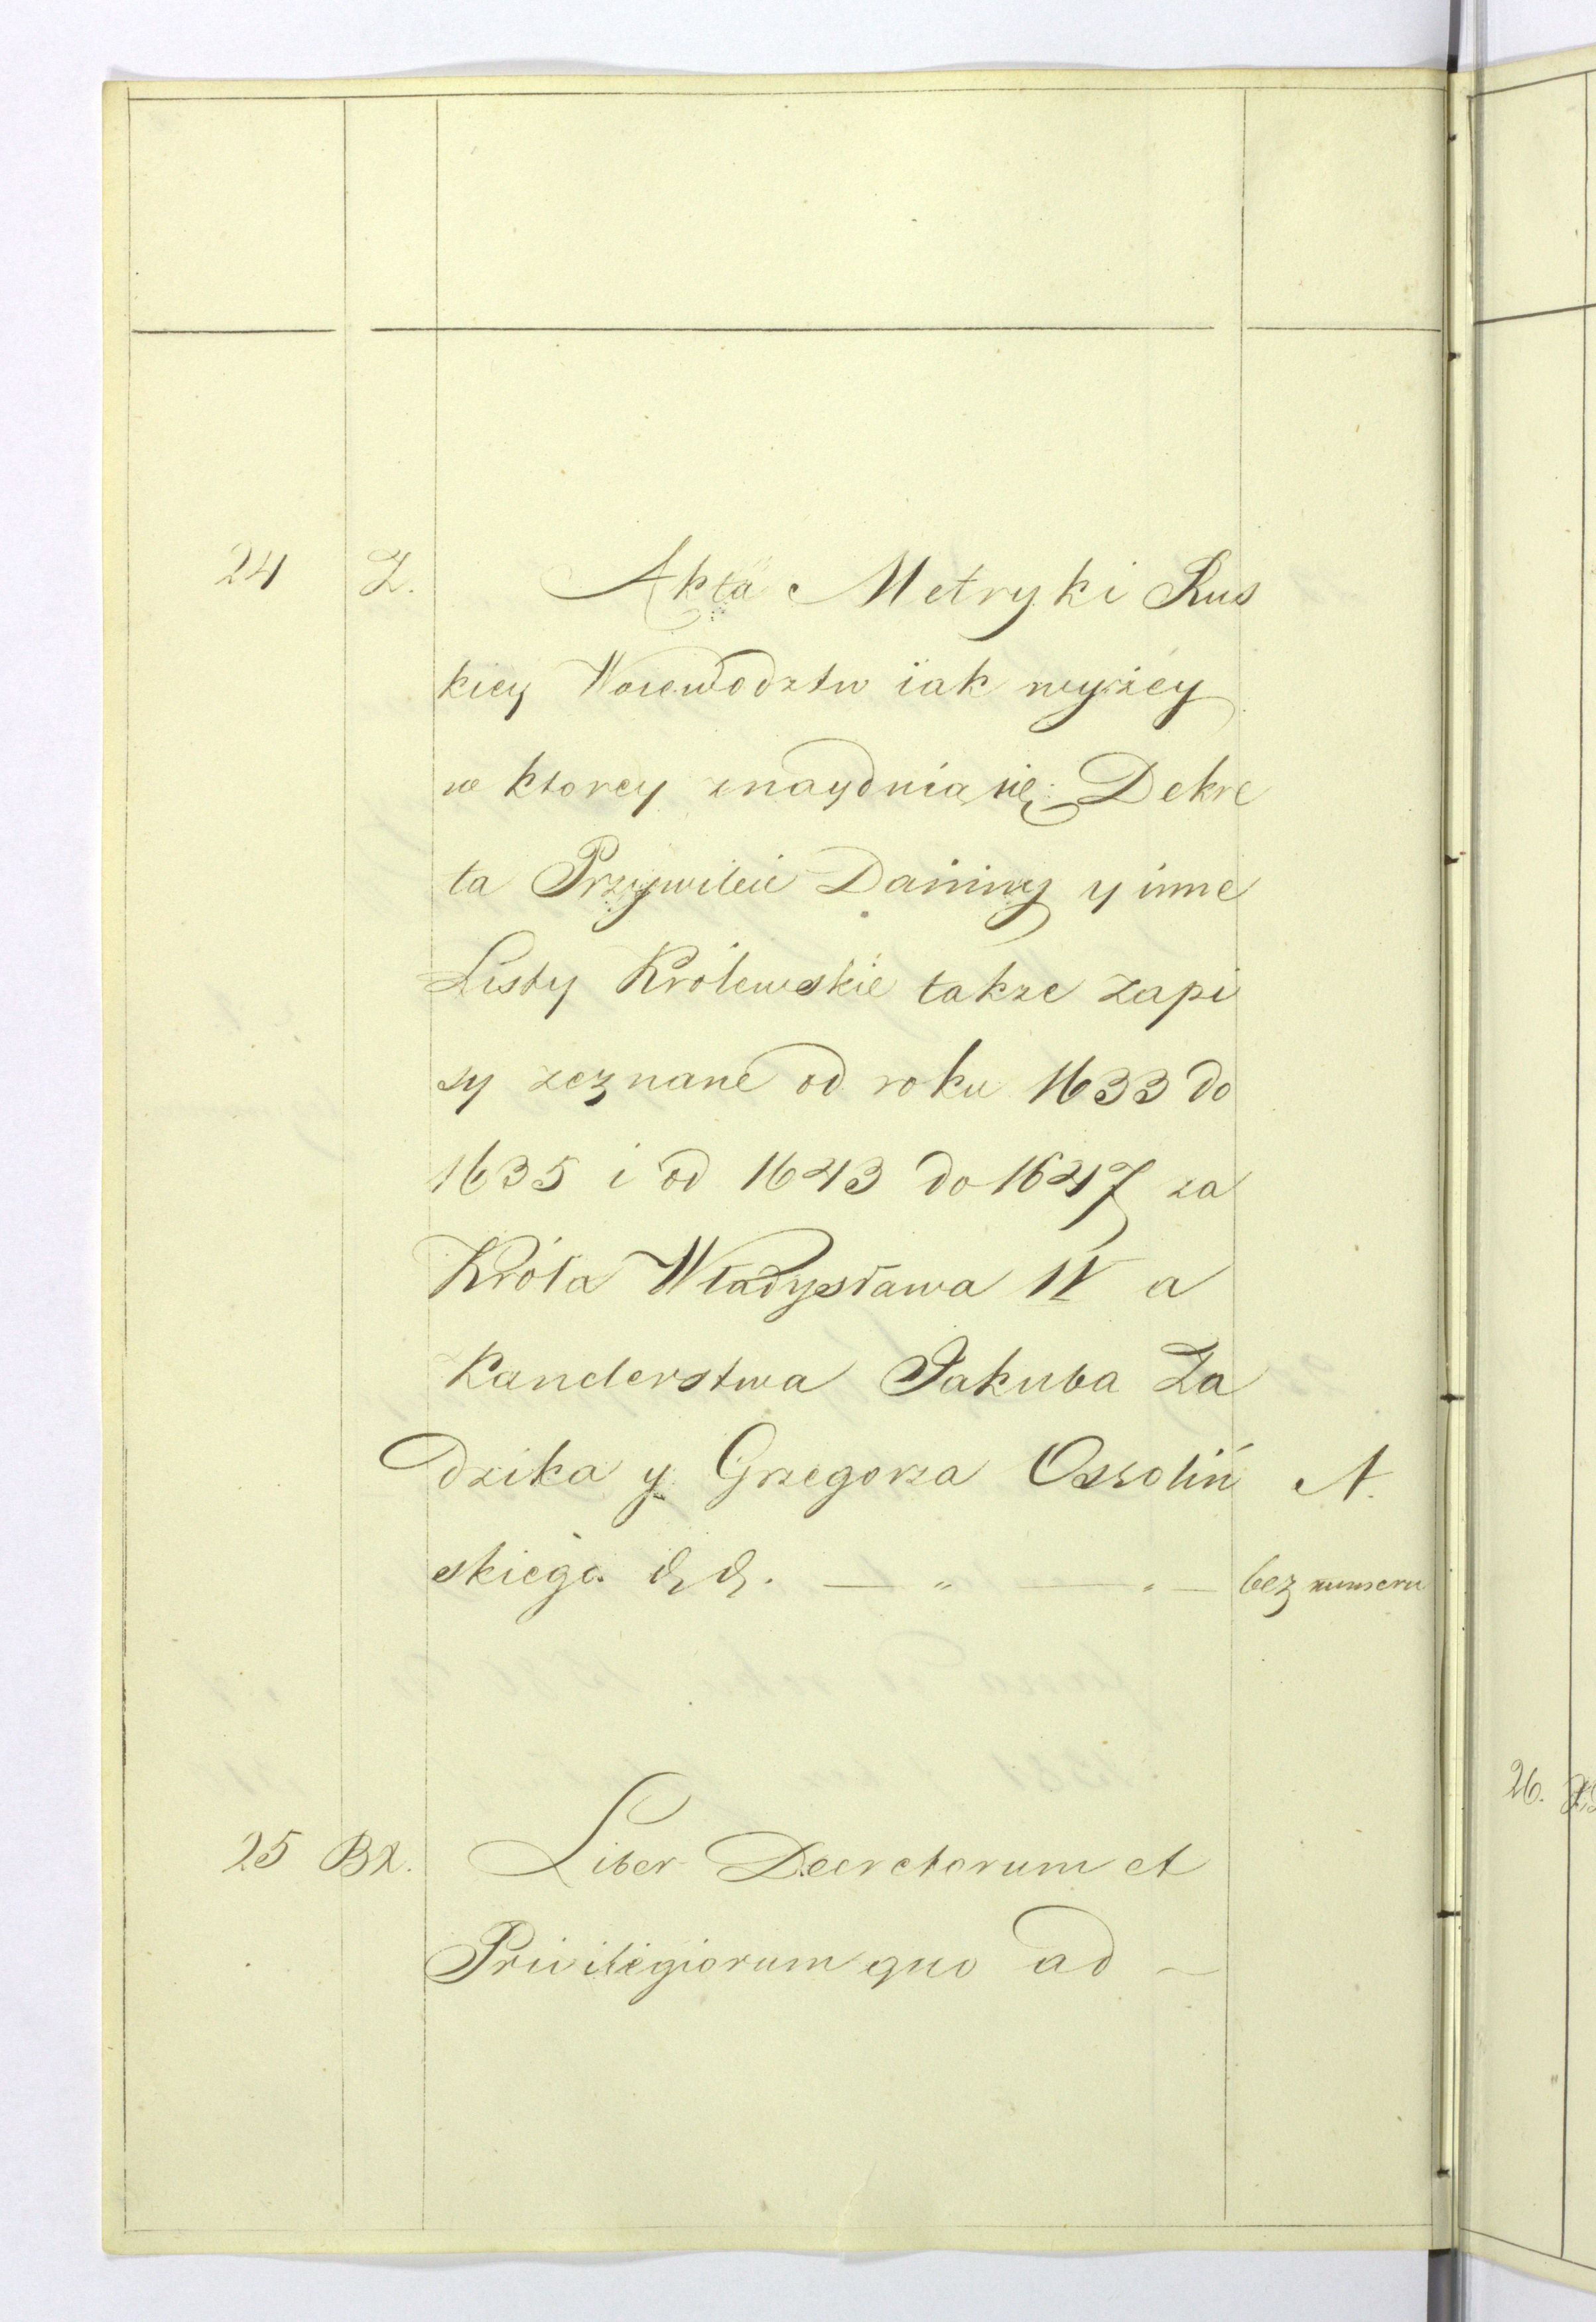 24 Z. Akta Metryki Rus
kiey Woiewodztw iak wyżey
w ktorey znayduią się Dekre
ta Przywileie Daniny y inne
Listy Królewskie takze zapi
sy zeznane od roku 1633 do
1635 i od 1643 do 1647 za
Króla Władysława IV a
Kanclerstwa Jakuba Za
dzika y Grzegorza Ossoliń A.
skiego &. &. — " — " — bez numeru
25 BZ. Liber Decretorum et
Privilegiorum quo ad —
26.